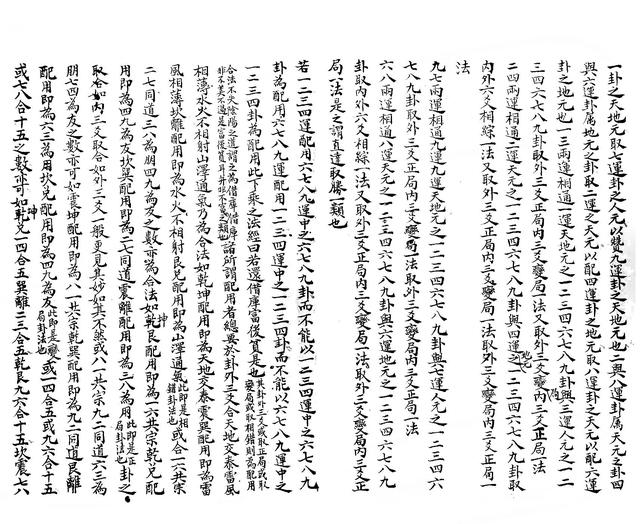 一卦之天地元取七運卦之人元以贊九運卦之天地元也二與八運卦屬天元之卦四
與六運卦屬地元之卦取二運之天元以配四運卦之地元取八運卦之天元以配六運
卦之地元也一三兩運相通一運天地元之一二三四六七八九卦與三運人元之一二
三四六七八九卦取外三爻正局內三爻變局一法又取外三爻變局內三爻正局一法
二四兩運相通二運天元之一二三四六七八九卦與四運之地元一二三四六七八九卦取
內外六爻相綜一法又取外三爻正局內三爻變局一法取外三爻變局內三爻正局一
法
九七兩運相通九運九運天地元之一二三四六七八九卦與七運人元之一二三四六
七八九卦取外三爻正局內三爻變局一法取外三爻變局內三爻正局一法
六八兩運相通八運天元之一二三四六七八九卦與六運地元之一二三四六七八九
卦取內外六爻相綜一法又取外三爻正局內三爻變局一法取外三爻變局內三爻正
局一法是之謂直達取勝一類也
若一二三四運配用六七八九運中之六七八九卦而不能以一二三四運中之六七八九
卦為配用六七八九運配用一二三四運中之一二三四卦而不能以六七八九運中之
一二三四卦為配用此下乘之法經曰若還借庫富後貧是也其卦外三爻或取正局或取變局或取相錯則為配用
合法不失陰陽之道謂之為借庫借庫非不美不過是富後貧耳非如不發之類也諸所謂配用者總要於卦外三爻合天地交泰雷風
相薄水火不相射山澤通氣乃為合法如乾坤配用即為天地交泰震巽配用即為雷
風相薄坎離配用即為水火不相射艮兌配用即為山澤通氣此即是相錯卦法也或合一六共宗
二七同道三八為朋四九為友之數亦為合法如乾坤艮配用即為一六共宗乾兌配
用即為四九為友坎巽配用即為二七同道震離配用即為三八為朋此即是正局卦法也卦之
取合如內三爻取合如外三爻一般更見其妙如其不然或八一共宗九二同道六三為
朋七四為友之數亦可如震坤配用即為八一共宗乾巽配用即為九二同道艮離
配用即為六三為朋坎兌配用即為四九為友此即是變局卦法也或一四合五或九六合十五
或七八合十五之數亦可如乾坤兌一四合五巽離二三合五乾艮九六合十五坎震七八